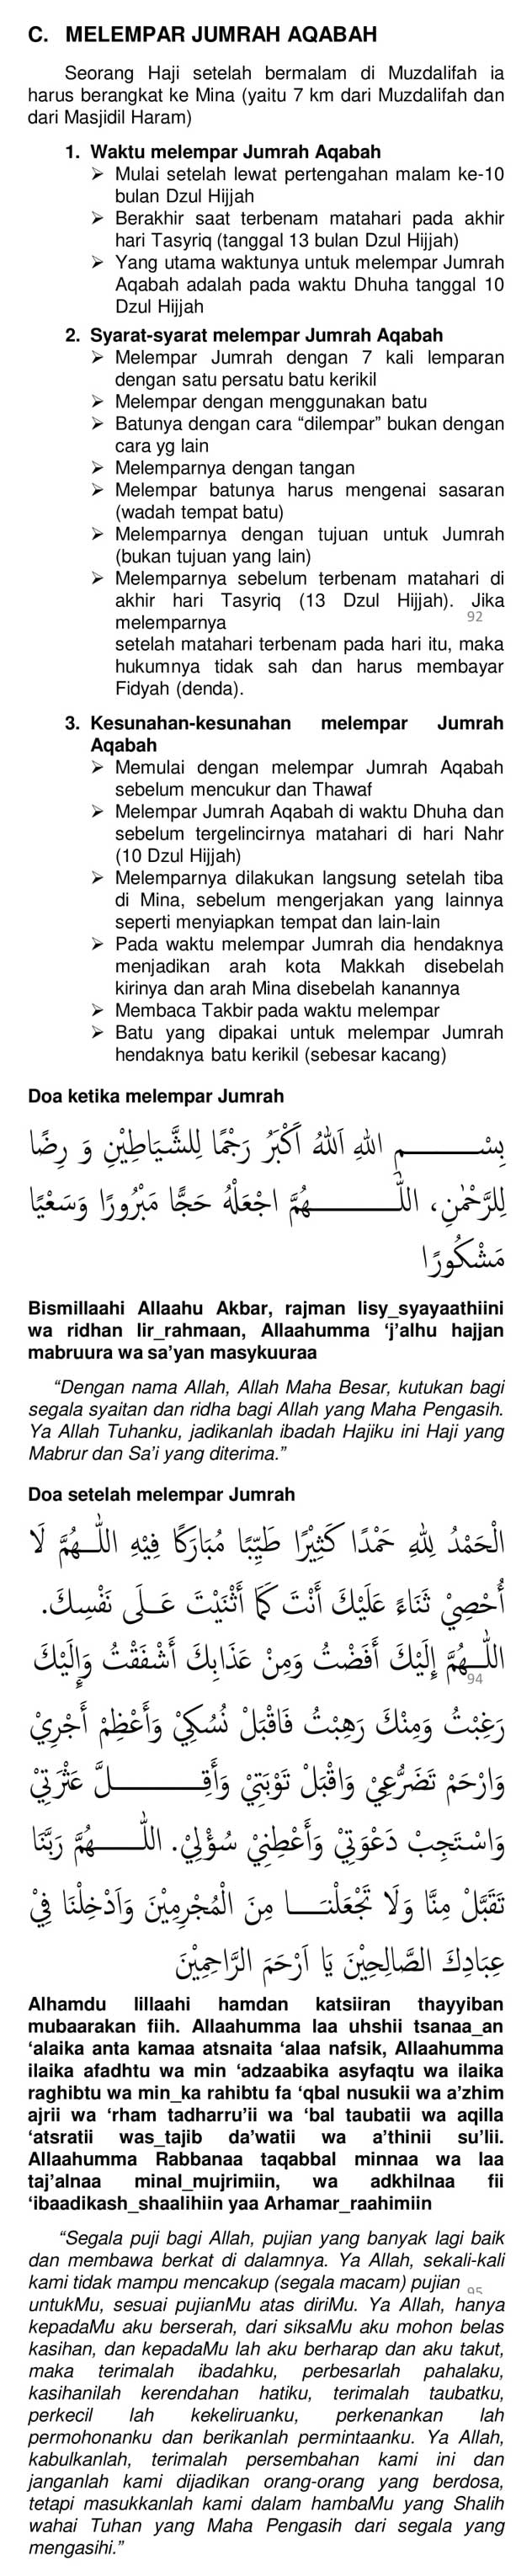 C. MELEMPAR JUMRAH AQABAH
Seorang Haji setelah bermalam di Muzdalifah ia
harus berangkat ke Mina (yaitu 7 km dari Muzdalifah dan
dari Masjidil Haram)
1. Waktu melempar Jumrah Aqabah
➢ Mulai setelah lewat pertengahan malam ke-10
bulan Dzul Hijjah
➢ Berakhir saat terbenam matahari pada akhir
hari Tasyriq (tanggal 13 bulan Dzul Hijjah)
➢ Yang utama waktunya untuk melempar Jumrah
Aqabah adalah pada waktu Dhuha tanggal 10
Dzul Hijjah
2. Syarat-syarat melempar Jumrah Aqabah
➢ Melempar Jumrah dengan 7 kali lemparan
dengan satu persatu batu kerikil
➢ Melempar dengan menggunakan batu
➢ Batunya dengan cara “dilempar” bukan dengan
cara yg lain
➢ Melemparnya dengan tangan
➢ Melempar batunya harus mengenai sasaran
(wadah tempat batu)
➢ Melemparnya dengan tujuan untuk Jumrah
(bukan tujuan yang lain)
➢ Melemparnya sebelum terbenam matahari di
akhir hari Tasyriq (13 Dzul Hijjah). Jika
melemparnya
92
setelah matahari terbenam pada hari itu, maka
hukumnya tidak sah dan harus membayar
Fidyah (denda).
3. Kesunahan-kesunahan melempar Jumrah
Aqabah
➢ Memulai dengan melempar Jumrah Aqabah
sebelum mencukur dan Thawaf
➢ Melempar Jumrah Aqabah di waktu Dhuha dan
sebelum tergelincirnya matahari di hari Nahr
(10 Dzul Hijjah)
➢ Melemparnya dilakukan langsung setelah tiba
di Mina, sebelum mengerjakan yang lainnya
seperti menyiapkan tempat dan lain-lain
➢ Pada waktu melempar Jumrah dia hendaknya
menjadikan arah kota Makkah disebelah
kirinya dan arah Mina disebelah kanannya
➢ Membaca Takbir pada waktu melempar
➢ Batu yang dipakai untuk melempar Jumrah
hendaknya batu kerikil (sebesar kacang)
Doa ketika melempar Jumrah
بِسْــــــمِ اللهِ اَللهُ أَكْبَرُ رَجْمًا لِلشَّيَاطِيْنِ وَ رِضًا
لِلرَّحْمٰنِ، اَللّٰــــــهُمَّ اجْعَلْهُ حَجًّا مَبْرُورًا وَسَعْيًا
مَشْكُورًا
Bismillaahi Allaahu Akbar, rajman lisy_syayaathiini
wa ridhan lir_rahmaan, Allaahumma ‘j’alhu hajjan
mabruura wa sa’yan masykuuraa
“Dengan nama Allah, Allah Maha Besar, kutukan bagi
segala syaitan dan ridha bagi Allah yang Maha Pengasih.
Ya Allah Tuhanku, jadikanlah ibadah Hajiku ini Haji yang
Mabrur dan Sa’i yang diterima.”
Doa setelah melempar Jumrah
اَلْحَمْدُ لِلّٰهِ حَمْدًا كَثِيْرًا طَيِّبًا مُبَارَكًا فِيْهِ اَللّٰـهُمَّ لَا
أُحْصِيْ ثَنَاءً عَلَيْكَ أَنْتَ كَمَا أَثْنَيْتَ عَـلَى نَفْسِكَ.
اَللّٰـهُمَّ إِلَيْكَ أَفَضْتُ وَمِنْ عَذَابِكَ أَشْفَقْتُ وَإِلَيْكَ
94
رَغِبْتُ وَمِنْكَ رَهِبْتُ فَاقْبَلْ نُسُكِيْ وَأَعْظِمْ أَجْرِيْ
وَارْحَمْ تَضَرُّعِيْ وَاقْبَلْ تَوْبَتِيْ وَأَقِــــــلَّ عَثْرَتِيْ
وَاسْتَجِبْ دَعْوَتِيْ وَأَعْطِنِيْ سُؤْلِيْ. اَللّٰــــهُمَّ رَبَّنَا
تَقَبَّلْ مِنَّا وَلَا تَجْعَلْنَــا مِنَ الْمُجْرِمِيْنَ وَأَدْخِلْنَا فِيْ
عِبَادِكَ الصَّالِحِيْنَ يَا أَرْحَمَ الرَّاحِمِيْنَ
Alhamdu lillaahi hamdan katsiiran thayyiban
mubaarakan fiih. Allaahumma laa uhshii tsanaa_an
‘alaika anta kamaa atsnaita ‘alaa nafsik, Allaahumma
ilaika afadhtu wa min ‘adzaabika asyfaqtu wa ilaika
raghibtu wa min_ka rahibtu fa ‘qbal nusukii wa a’zhim
ajrii wa ‘rham tadharru’ii wa ‘bal taubatii wa aqilla
‘atsratii was_tajib da’watii wa a’thinii su’lii.
Allaahumma Rabbanaa taqabbal minnaa wa laa
taj’alnaa minal_mujrimiin, wa adkhilnaa fii
‘ibaadikash_shaalihiin yaa Arhamar_raahimiin
“Segala puji bagi Allah, pujian yang banyak lagi baik
dan membawa berkat di dalamnya. Ya Allah, sekali-kali
kami tidak mampu mencakup (segala macam) pujian
95
untukMu, sesuai pujianMu atas diriMu. Ya Allah, hanya
kepadaMu aku berserah, dari siksaMu aku mohon belas
kasihan, dan kepadaMu lah aku berharap dan aku takut,
maka terimalah ibadahku, perbesarlah pahalaku,
kasihanilah kerendahan hatiku, terimalah taubatku,
perkecil lah kekeliruanku, perkenankan lah
permohonanku dan berikanlah permintaanku. Ya Allah,
kabulkanlah, terimalah persembahan kami ini dan
janganlah kami dijadikan orang-orang yang berdosa,
tetapi masukkanlah kami dalam hambaMu yang Shalih
wahai Tuhan yang Maha Pengasih dari segala yang
mengasihi.”